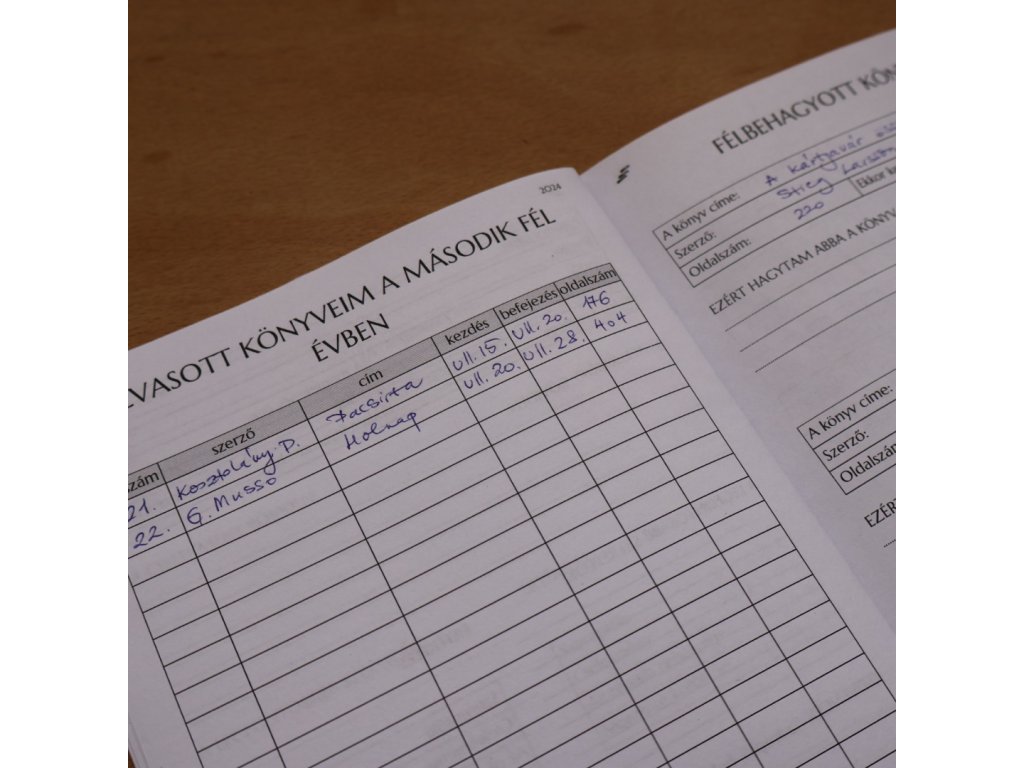 2024
VASOTT KÖNYVEIM A MÁSODIK FÉL
ÉVBEN
szám szerző cím kezdés befejezés oldalszám
21. Kosztolány D. Pacsirta VII. 15. VII. 20. 176
22. G. Musso Holnap VII. 20. VII. 28. 404
FÉLBEHAGYOTT KÖN
A könyv címe: A kártyavár
Szerző: Stieg Larsson
Oldalszám: 220 Ekkor
EZÉRT HAGYTAM ABBA A KÖNYV
A könyv címe:
Szerző:
Oldalszám
EZÉRT